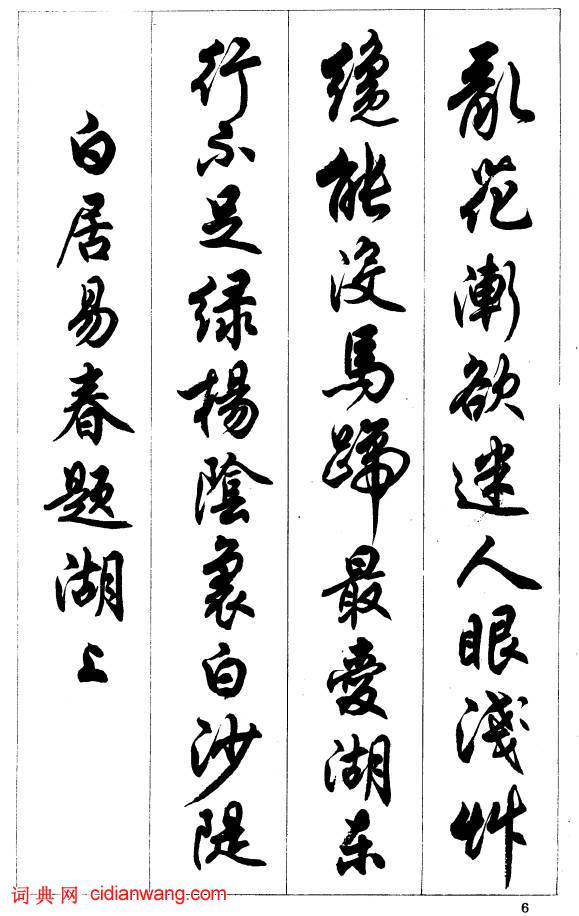 亂花漸欲迷人眼淺艸
纔能沒馬蹄最愛湖東
行不足綠楊陰裏白沙隄
白居易春題湖上
词典网 cidianwang.com
6